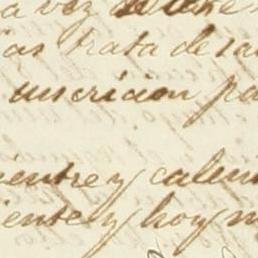 a vez de
as trata de sa
inscricion pa
ientre y calen
iente y hoy m